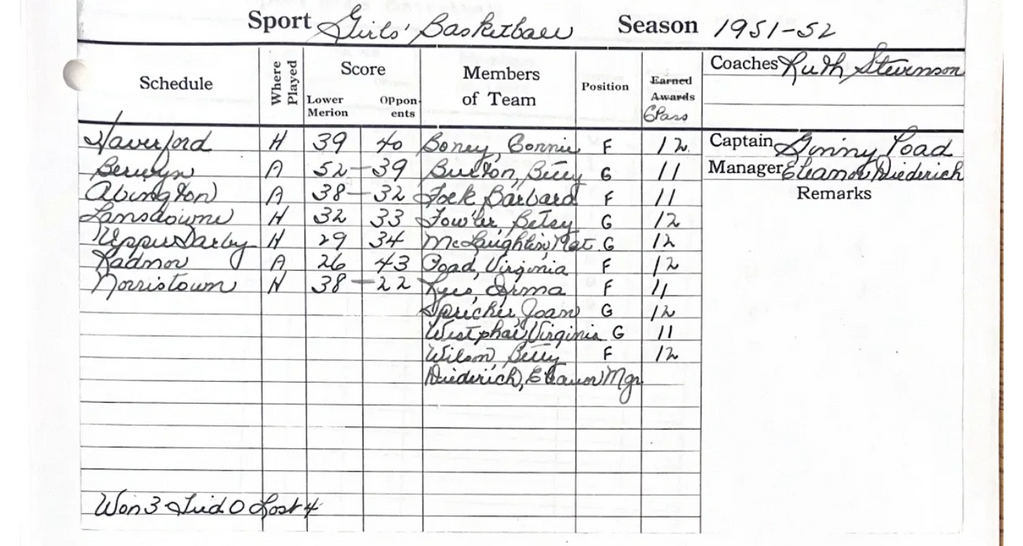 Sport Girls' Basketball Season 1951-52
Schedule Where Played Score Members of Team Position Earned Awards Coaches Ruth Stevenson
Lower Merion Opponents Class
Haverford H 39 40 Boney, Connie F 12 Captain Ginny Poad
Berwyn A 52-39 Burton, Betty G 11 Manager Eleanor Diederich
Abington A 38-32 Fock Barbara F 11 Remarks
Lansdowne H 32 33 Fowler, Betsy G 12
Upper Darby H 29 34 McLaughlin, Pat. G 12
Radnor A 26 43 Poad, Virginia F 12
Norristown H 38-22 Irma F 11
Spricher, Joan G 12
Westphal, Virginia G 11
Wilson, Betty F 12
Diederich, Eleanor Mgr
Won 3 Tied 0 Lost 4